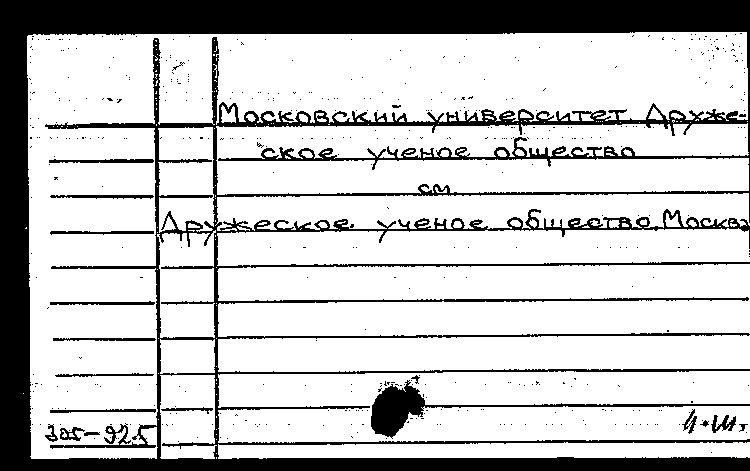 Московский университет Друже-
ское ученое общество
см.
Дружеское ученое общество. Москва